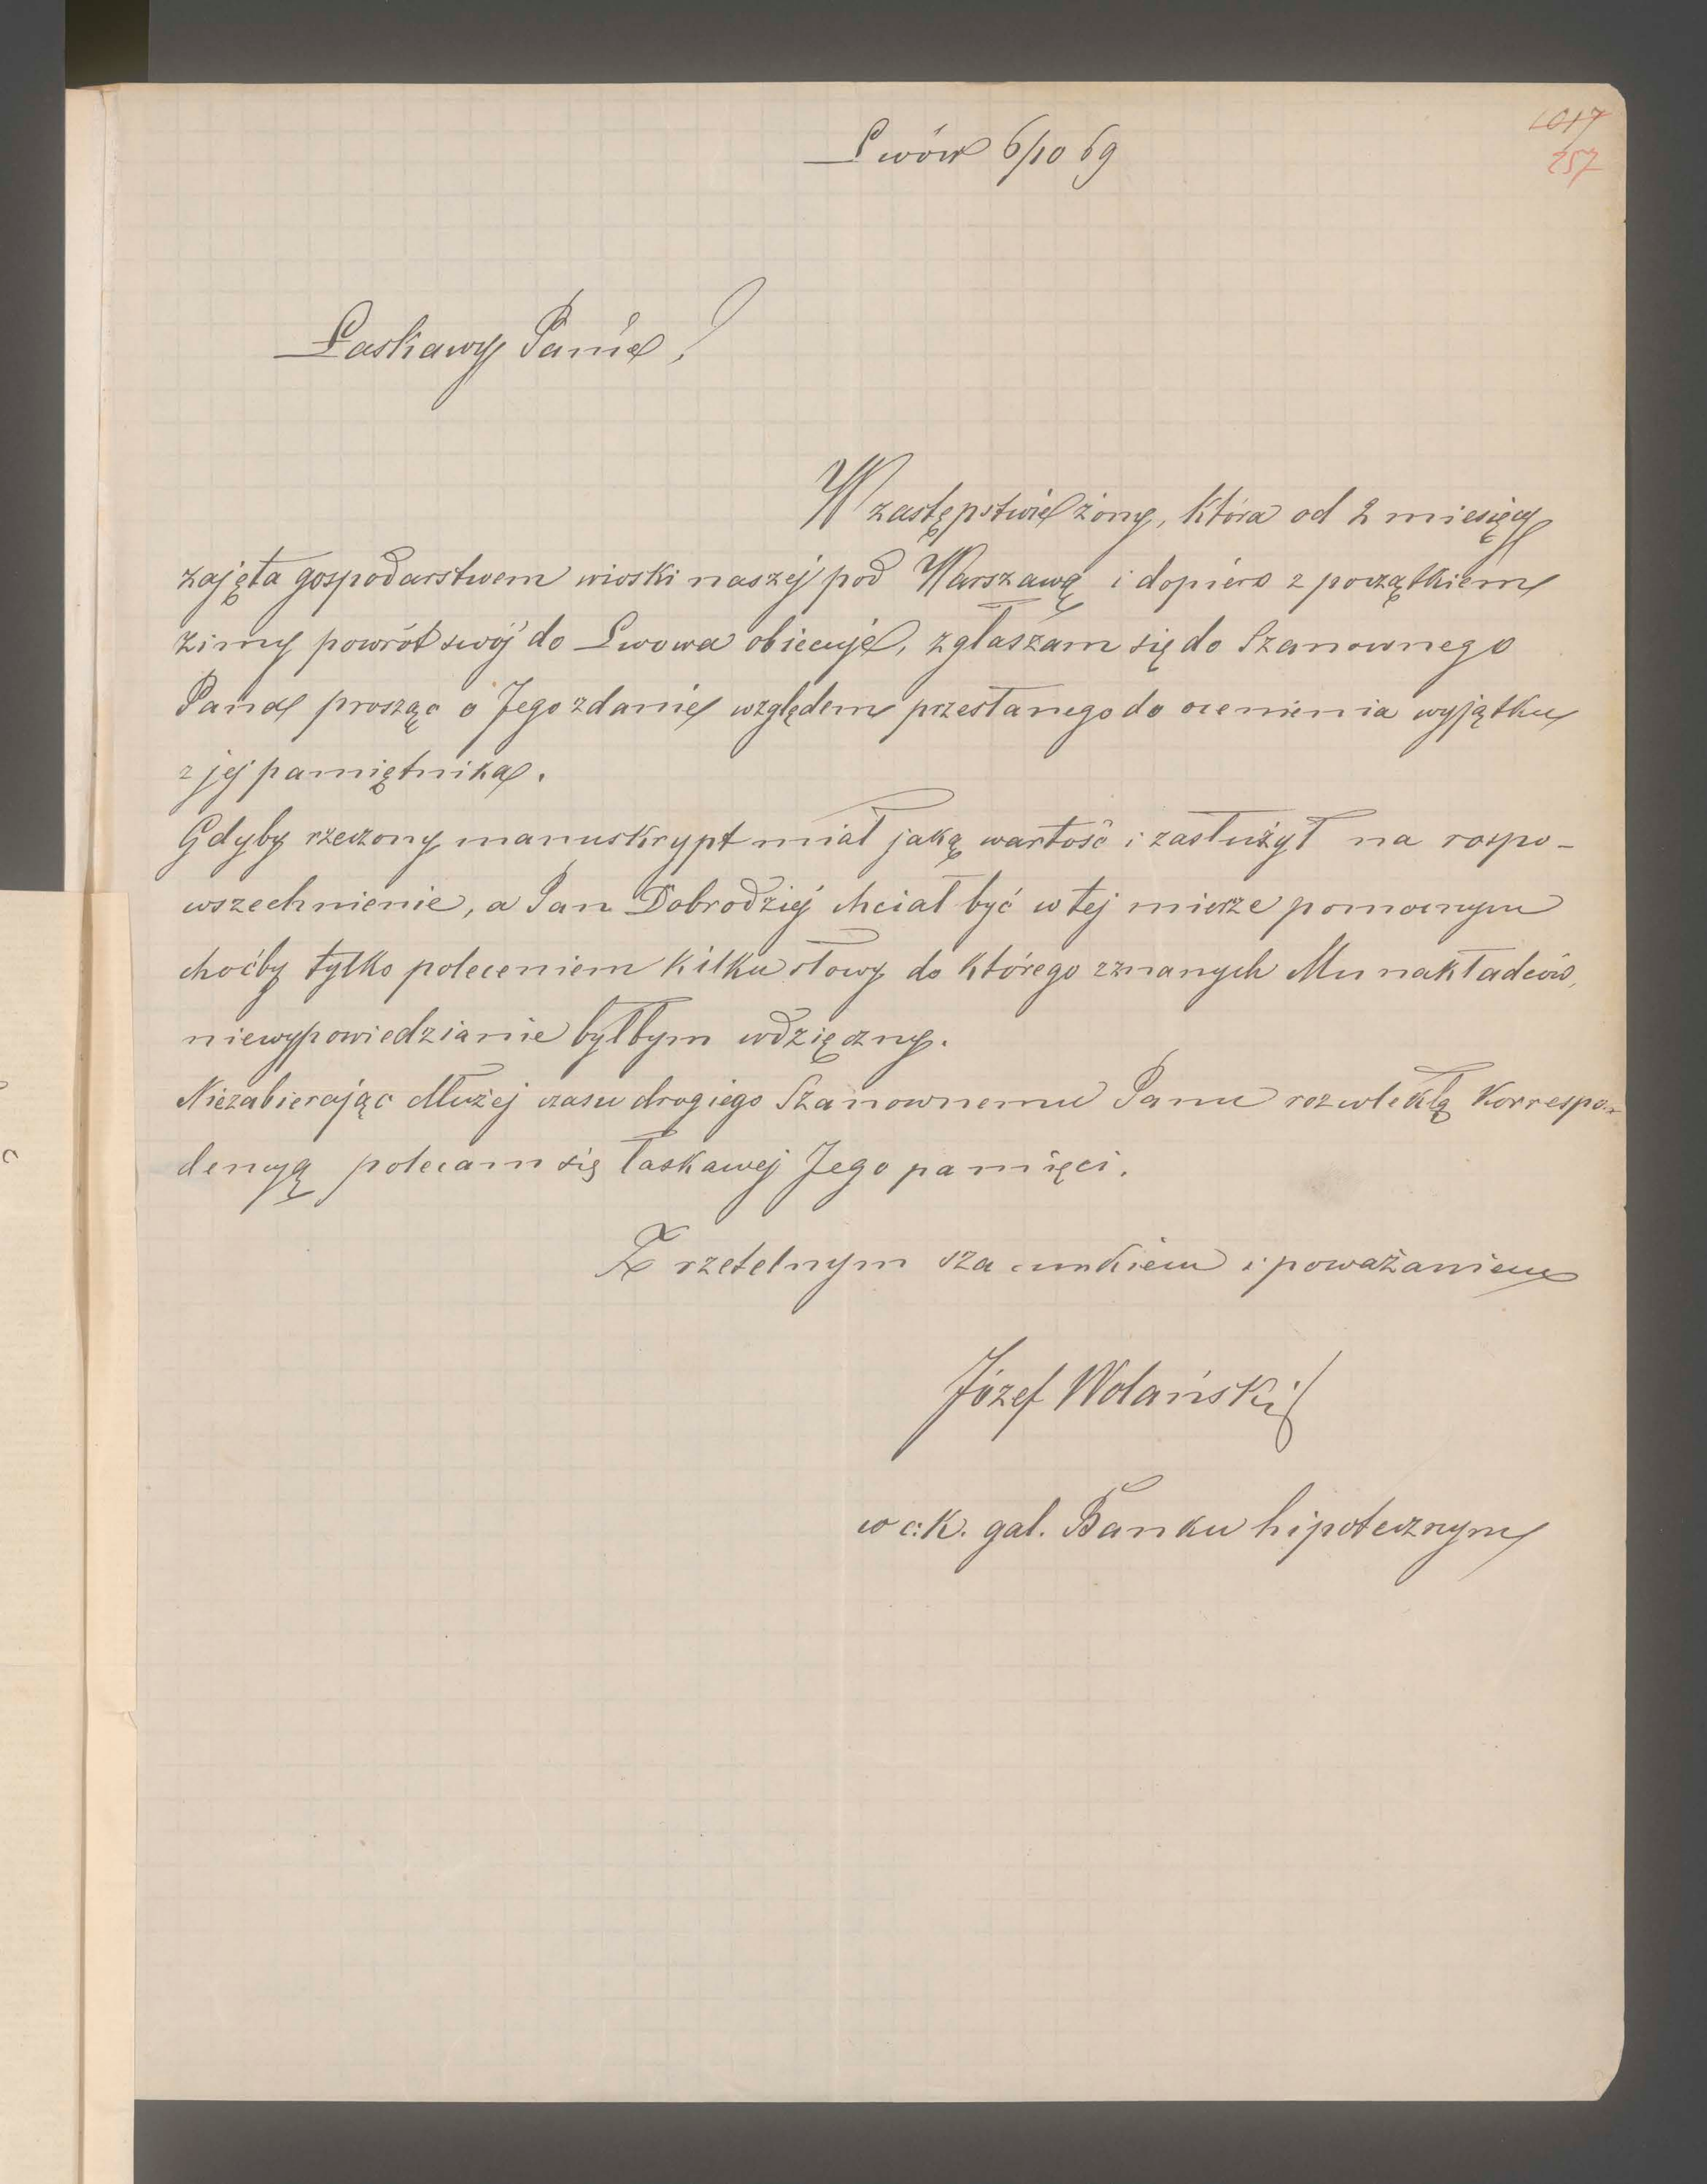 1017
257
Lwów 6/10 69
Łaskawy Panie!
W zastępstwie żony, która od 2 miesięcy
zajęta gospodarstwem wioski naszej pod Warszawą i dopiero z początkiem
zimy powrót swój do Lwowa obiecuje, zgłaszam się do Szanownego
Pana prosząc o Jego zdanie względem przesłanego do ocenienia wyjątku
z jej pamiętnika.
Gdyby rzeczony manuskrypt miał jaką wartość i zasłużył na rozpo-
wszechnienie, a Pan Dobrodziej chciał być w tej mierze pomocnym
choćby tylko poleceniem kilku słowy do którego znanych Mu nakładców,
niewypowiedzianie byłbym wdzięczny.
Niezabierając dłużej czasu drogiego Szanownemu Panu rozwlekłą korrespon-
dencyą polecam się łaskawej Jego pamięci.
Z rzetelnym szacunkiem i poważaniem
Józef Wolański
w c. k. gal. Banku hipotecznym